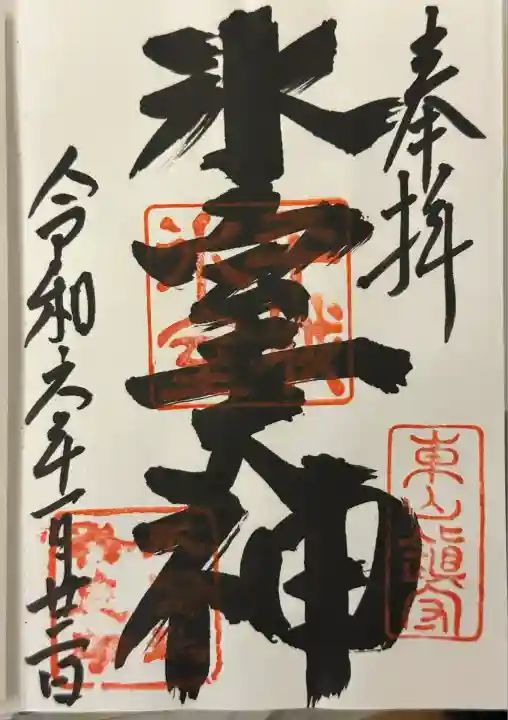 奉拝
氷室大神
東山鎮守
令和六年一月廿二日